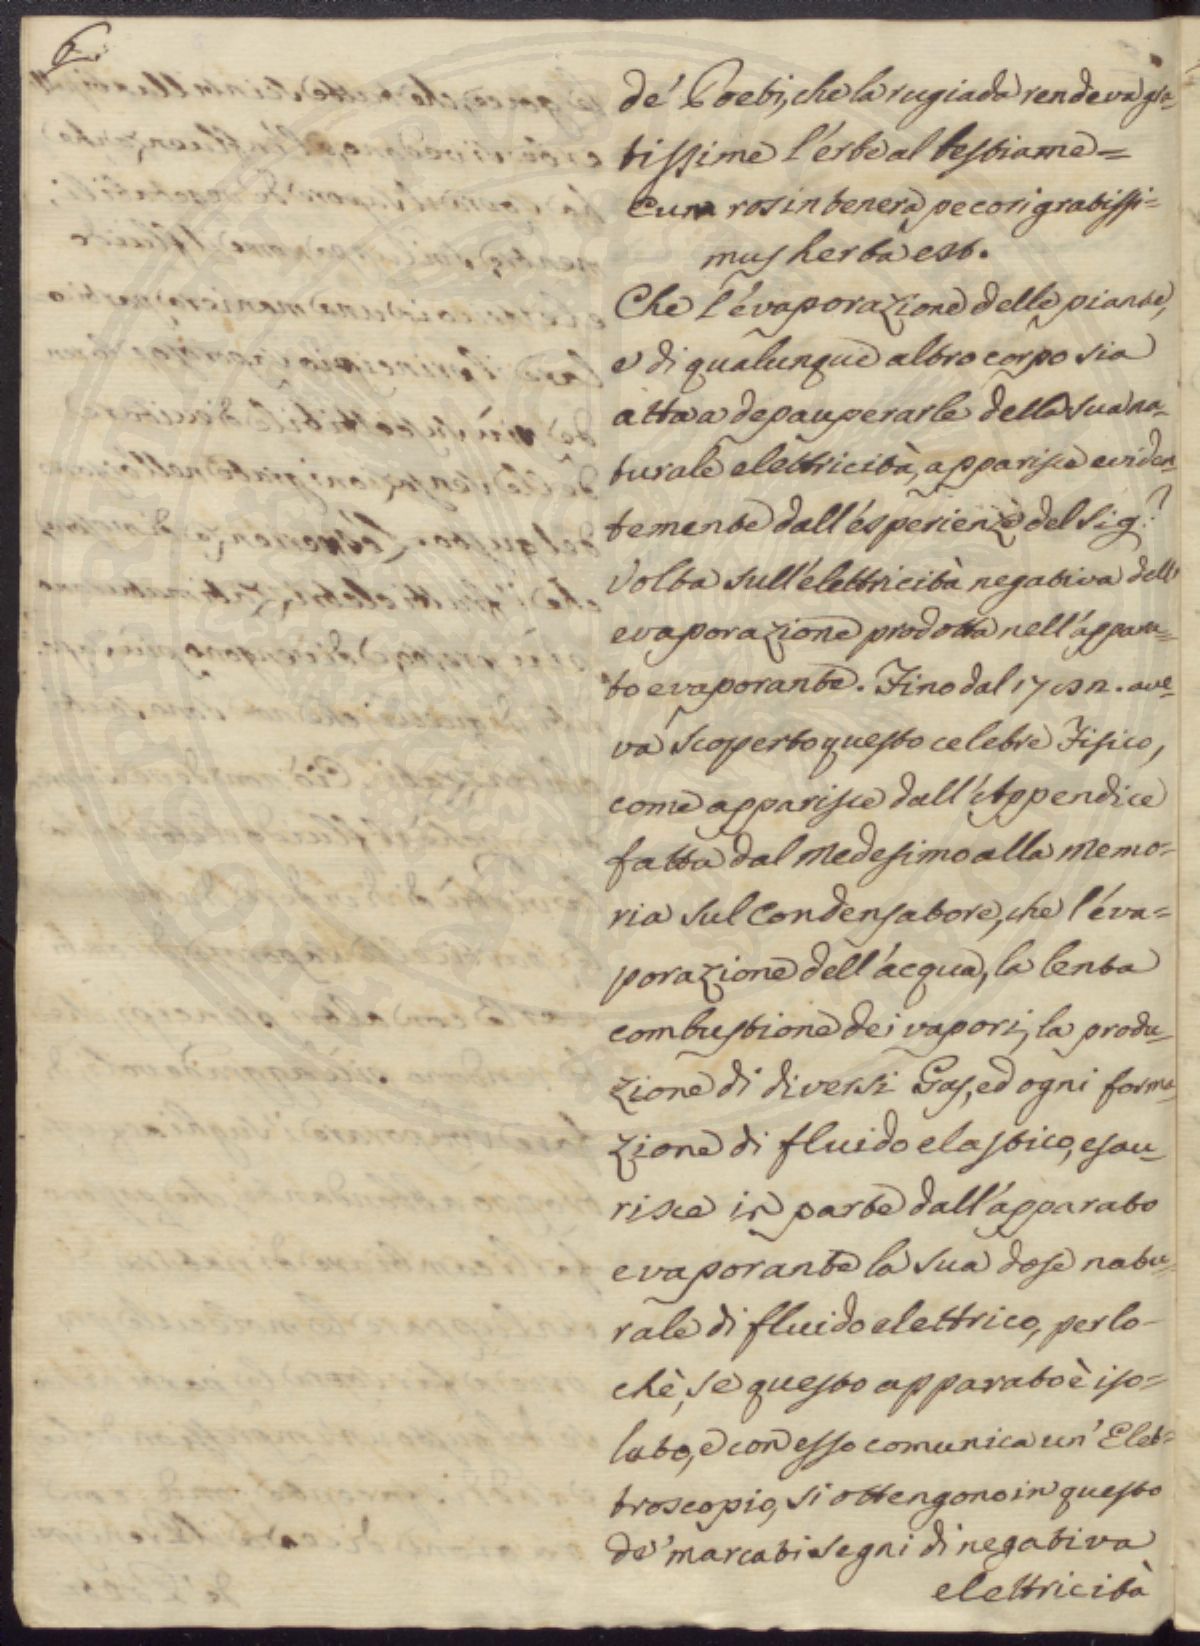 6.
de' Poeti, che la rugiada rendeva gra-
tissime l'erbe al bestiame=
Cum ros in tenera pecori gratissi=
mus herba est.
Che l'evaporazione delle piante,
e di qualunque altro corpo sia
atta a depauperarle della sua na-
turale elettricità, apparisce eviden-
temente dall'esperienze del Sig.r
Volta sull'elettricità negativa dell'
evaporazione prodotta nell'appara-
to evaporante. Fino dal 1782. ave-
va scoperto questo celebre Fisico,
come apparisce dall'Appendice
fatta dal Medesimo alla Memo-
ria sul Condensatore, che l'eva=
porazione dell'acqua, la lenta
combustione dei vapori, la produ-
zione di diversi Gas, ed ogni forma-
zione di fluido elastico, esau-
risce in parte dall'apparato
evaporante la sua dose natu-
rale di fluido elettrico, perlo-
chè, se questo apparato è iso=
lato, e con esso comunica un' Elet=
troscopio, si ottengono in questo
de' marcati segni di negativa
elettricità